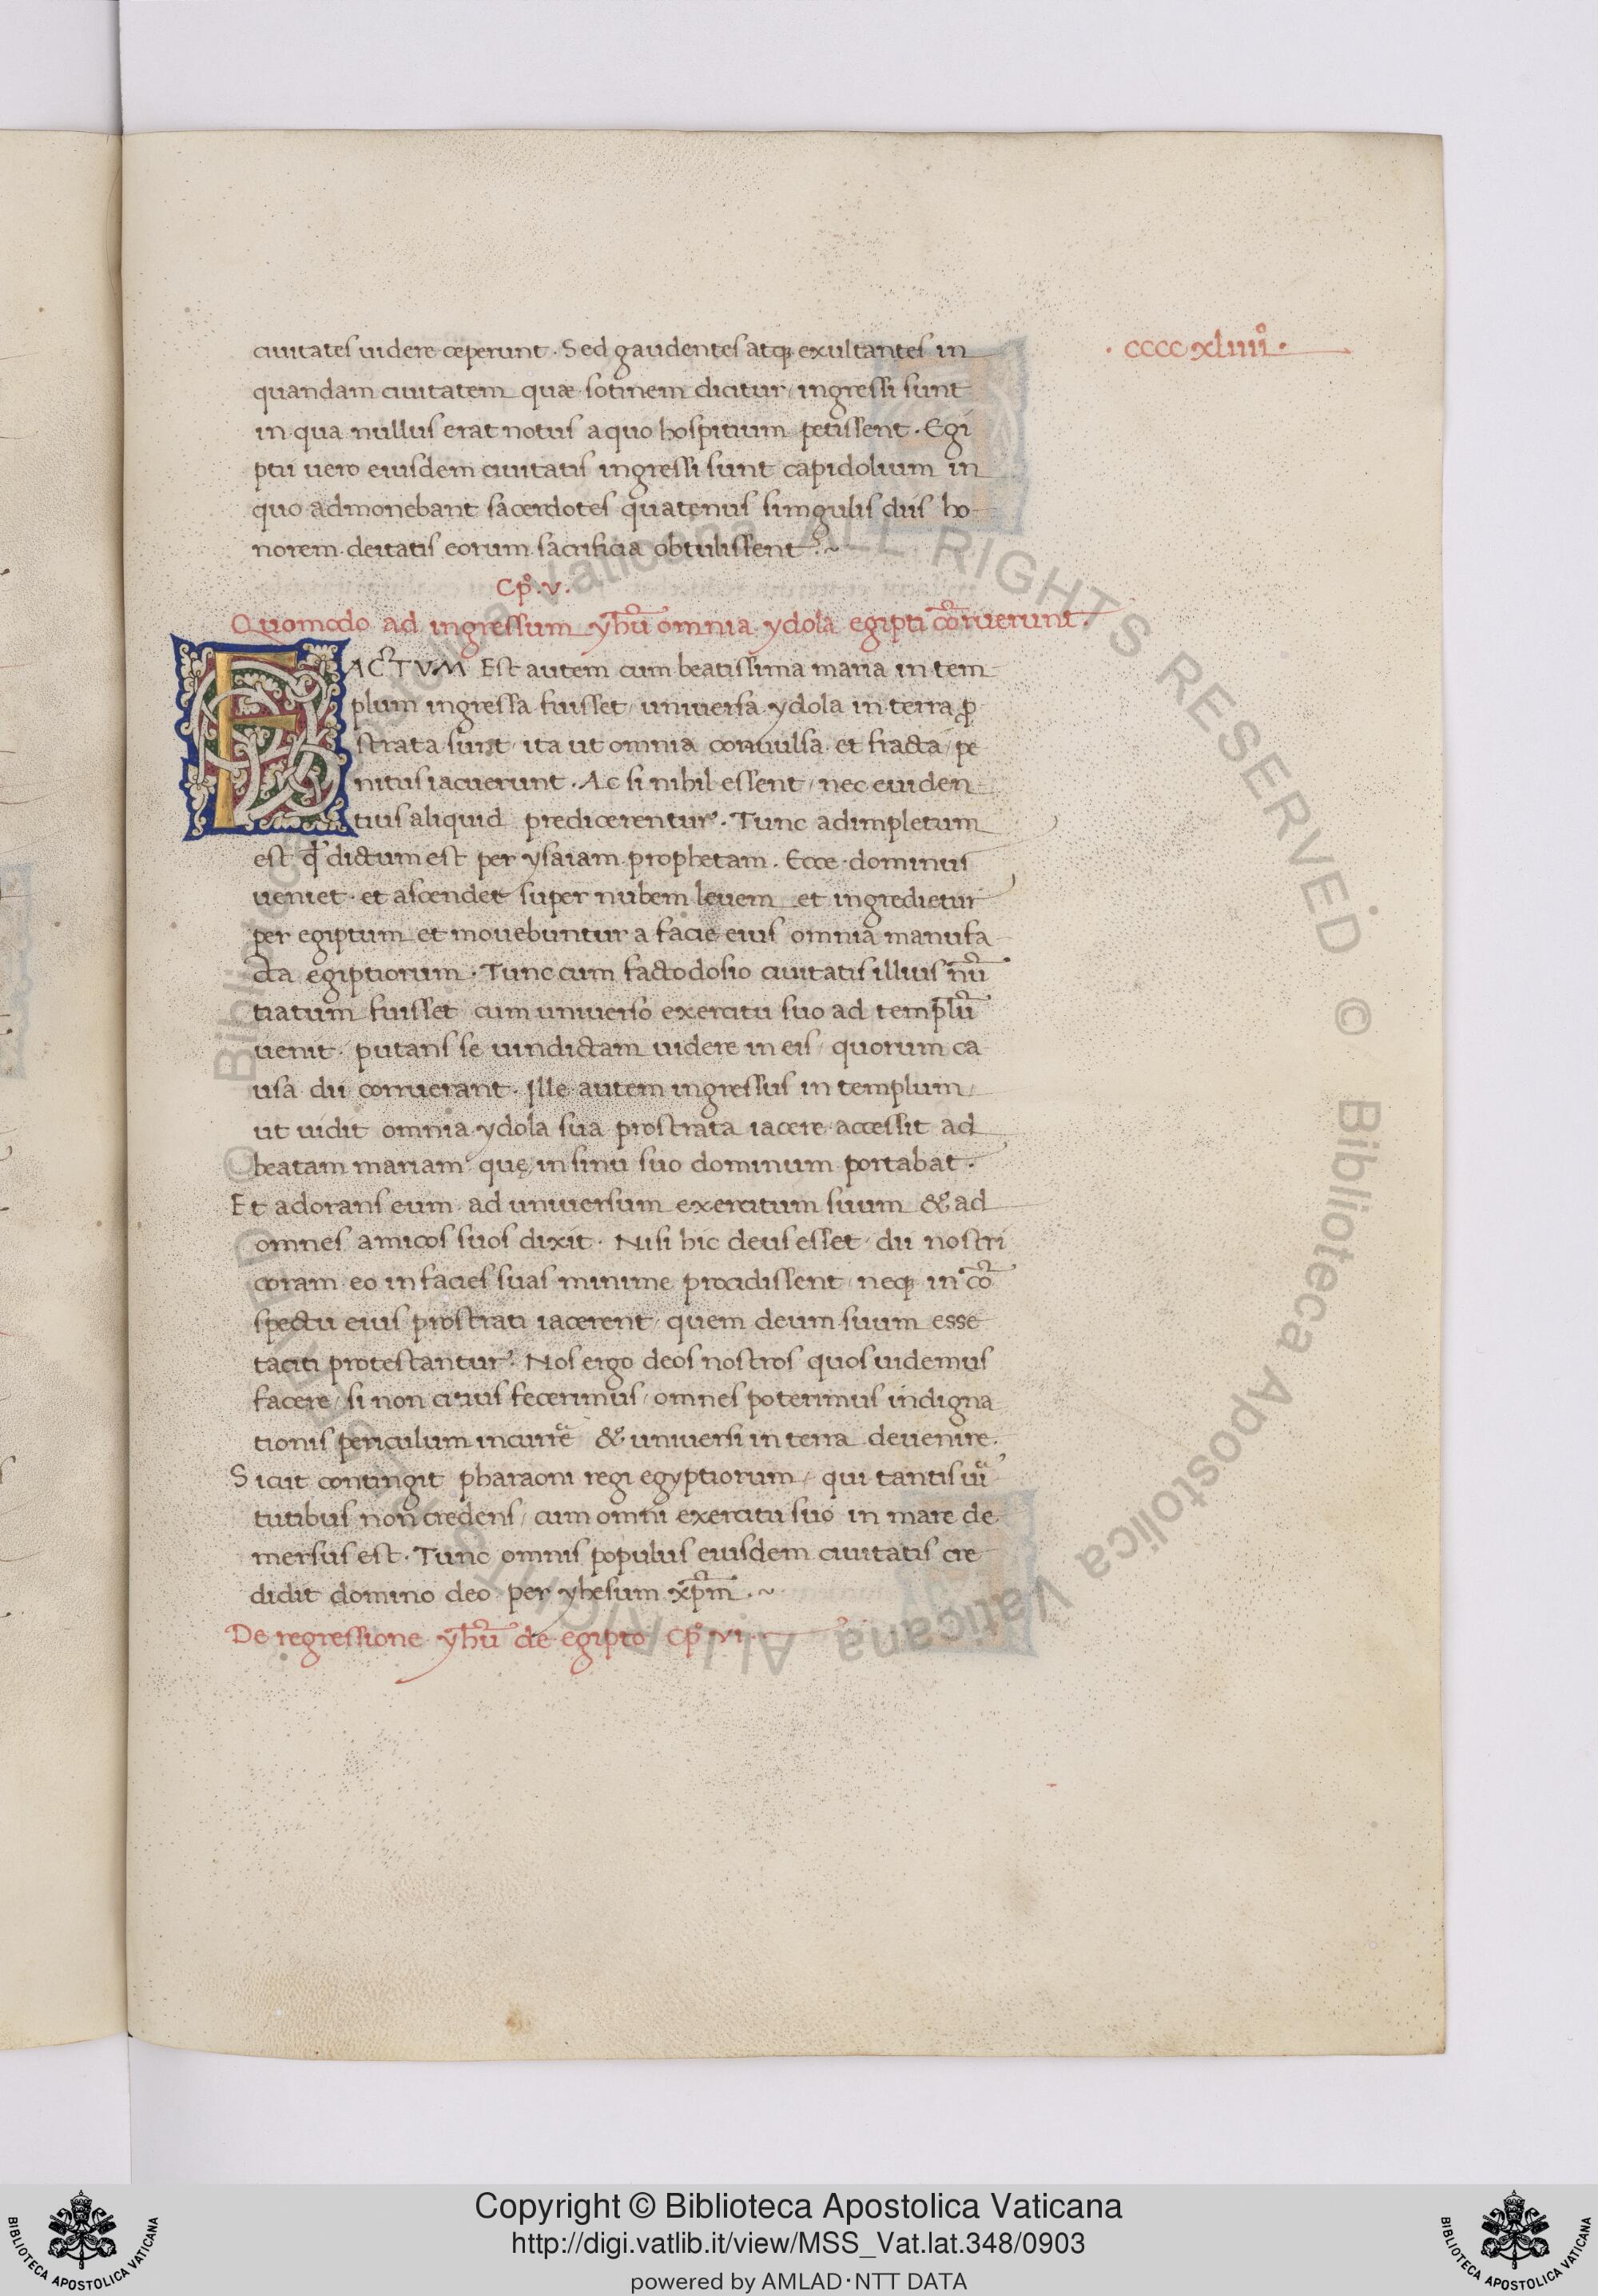 ciuitates uidere ceperunt. Sed gaudentes atq; exultantes in
· cccc xliiii°·
quandam ciuitatem quæ sotinem dicitur, ingressi sunt
in qua nullus erat notus a quo hospitium petissent. Egi
ptii uero eiusdem ciuitatis ingressi sunt capidolium in
quo admonebant sacerdotes quatenus singulis diis ho
norem deitatis eorum sacrificia obtulissent.~
Cp°. v.
Quomodo ad ingressum yhū omnia ydola egipti cōruerunt.
FACTVM Est autem cum beatissima maria in tem
plum ingressa fuisset, uniuersa ydola in terra ꝓ
strata sunt, ita ut omnia conuulsa et fracta, pe
nitus iacuerunt. Ac si nihil essent, nec euiden
tius aliquid predicerentur. Tunc adimpletum
est qd̕ dictum est per ysaiam prophetam. Ecce dominus
ueniet. et ascendet super nubem leuem et ingredietur
per egiptum et mouebuntur a facie eius omnia manufa
cta egiptiorum. Tunc cum facto dosio ciuitatis illius nū
tiatum fuisset cum uniuerso exercitu suo ad templū
uenit. putans se uindictam uidere in eis, quorum ca
usa dii corruerant. Ille autem ingressus in templum,
ut uidit omnia ydola sua prostrata iacere accessit ad
beatam mariam quę in sinu suo dominum portabat.
Et adorans eum ad uniuersum exercitum suum & ad
omnes amicos suos dixit. Nisi hic deus esset, dii nostri
coram eo in facies suas minime procidissent, neq; in cō
spectu eius prostrati iacerent, quem deum suum esse
taciti protestantur. Nos ergo deos nostros quos uidemus
facere, si non citius fecerimus, omnes poterimus indigna
tionis periculum incurrē & uniuersi in terra deuenire.
Sicut contingit pharaoni regi egyptiorum, qui tantis uir̄
tutibus non credens, cum omni exercitu suo in mare de
mersus est. Tunc omnis populus eiusdem ciuitatis cre
didit domino deo per yhesum xp̄m.~
De regressione yhū de egipto Cp° vi.
Biblioteca Apostolica Vaticana ALL RIGHTS RESERVED © Biblioteca Apostolica Vaticana ALL RIGHTS RESERVED ©
Copyright © Biblioteca Apostolica Vaticana
http://digi.vatlib.it/view/MSS_Vat.lat.348/0903
powered by AMLAD·NTT DATA
BIBLIOTECA APOSTOLICA VATICANA
BIBLIOTECA APOSTOLICA VATICANA